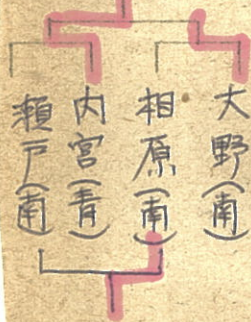 大野(南)
相原(南)
内宮(青)
瀬戸(南)